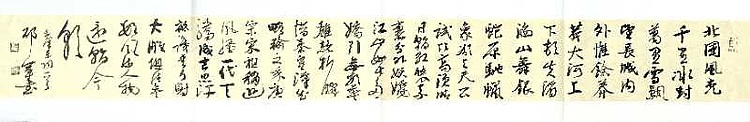 北國風光
千里冰封
萬里雪飄
望長城内
外惟餘莽
莽大河上
下頓失滔
滔山舞銀
蛇原馳蠟
象欲与天公
試比高須晴
日看紅妝素
裹分外妖嬈
江山如此多
嬌引無數英
雄競折腰
惜秦皇漢武
略輸文采唐
宗宋祖稍遜
風騷一代天
驕成吉思汗
祗識彎弓射
大雕俱往矣
數風流人物
還看今
朝